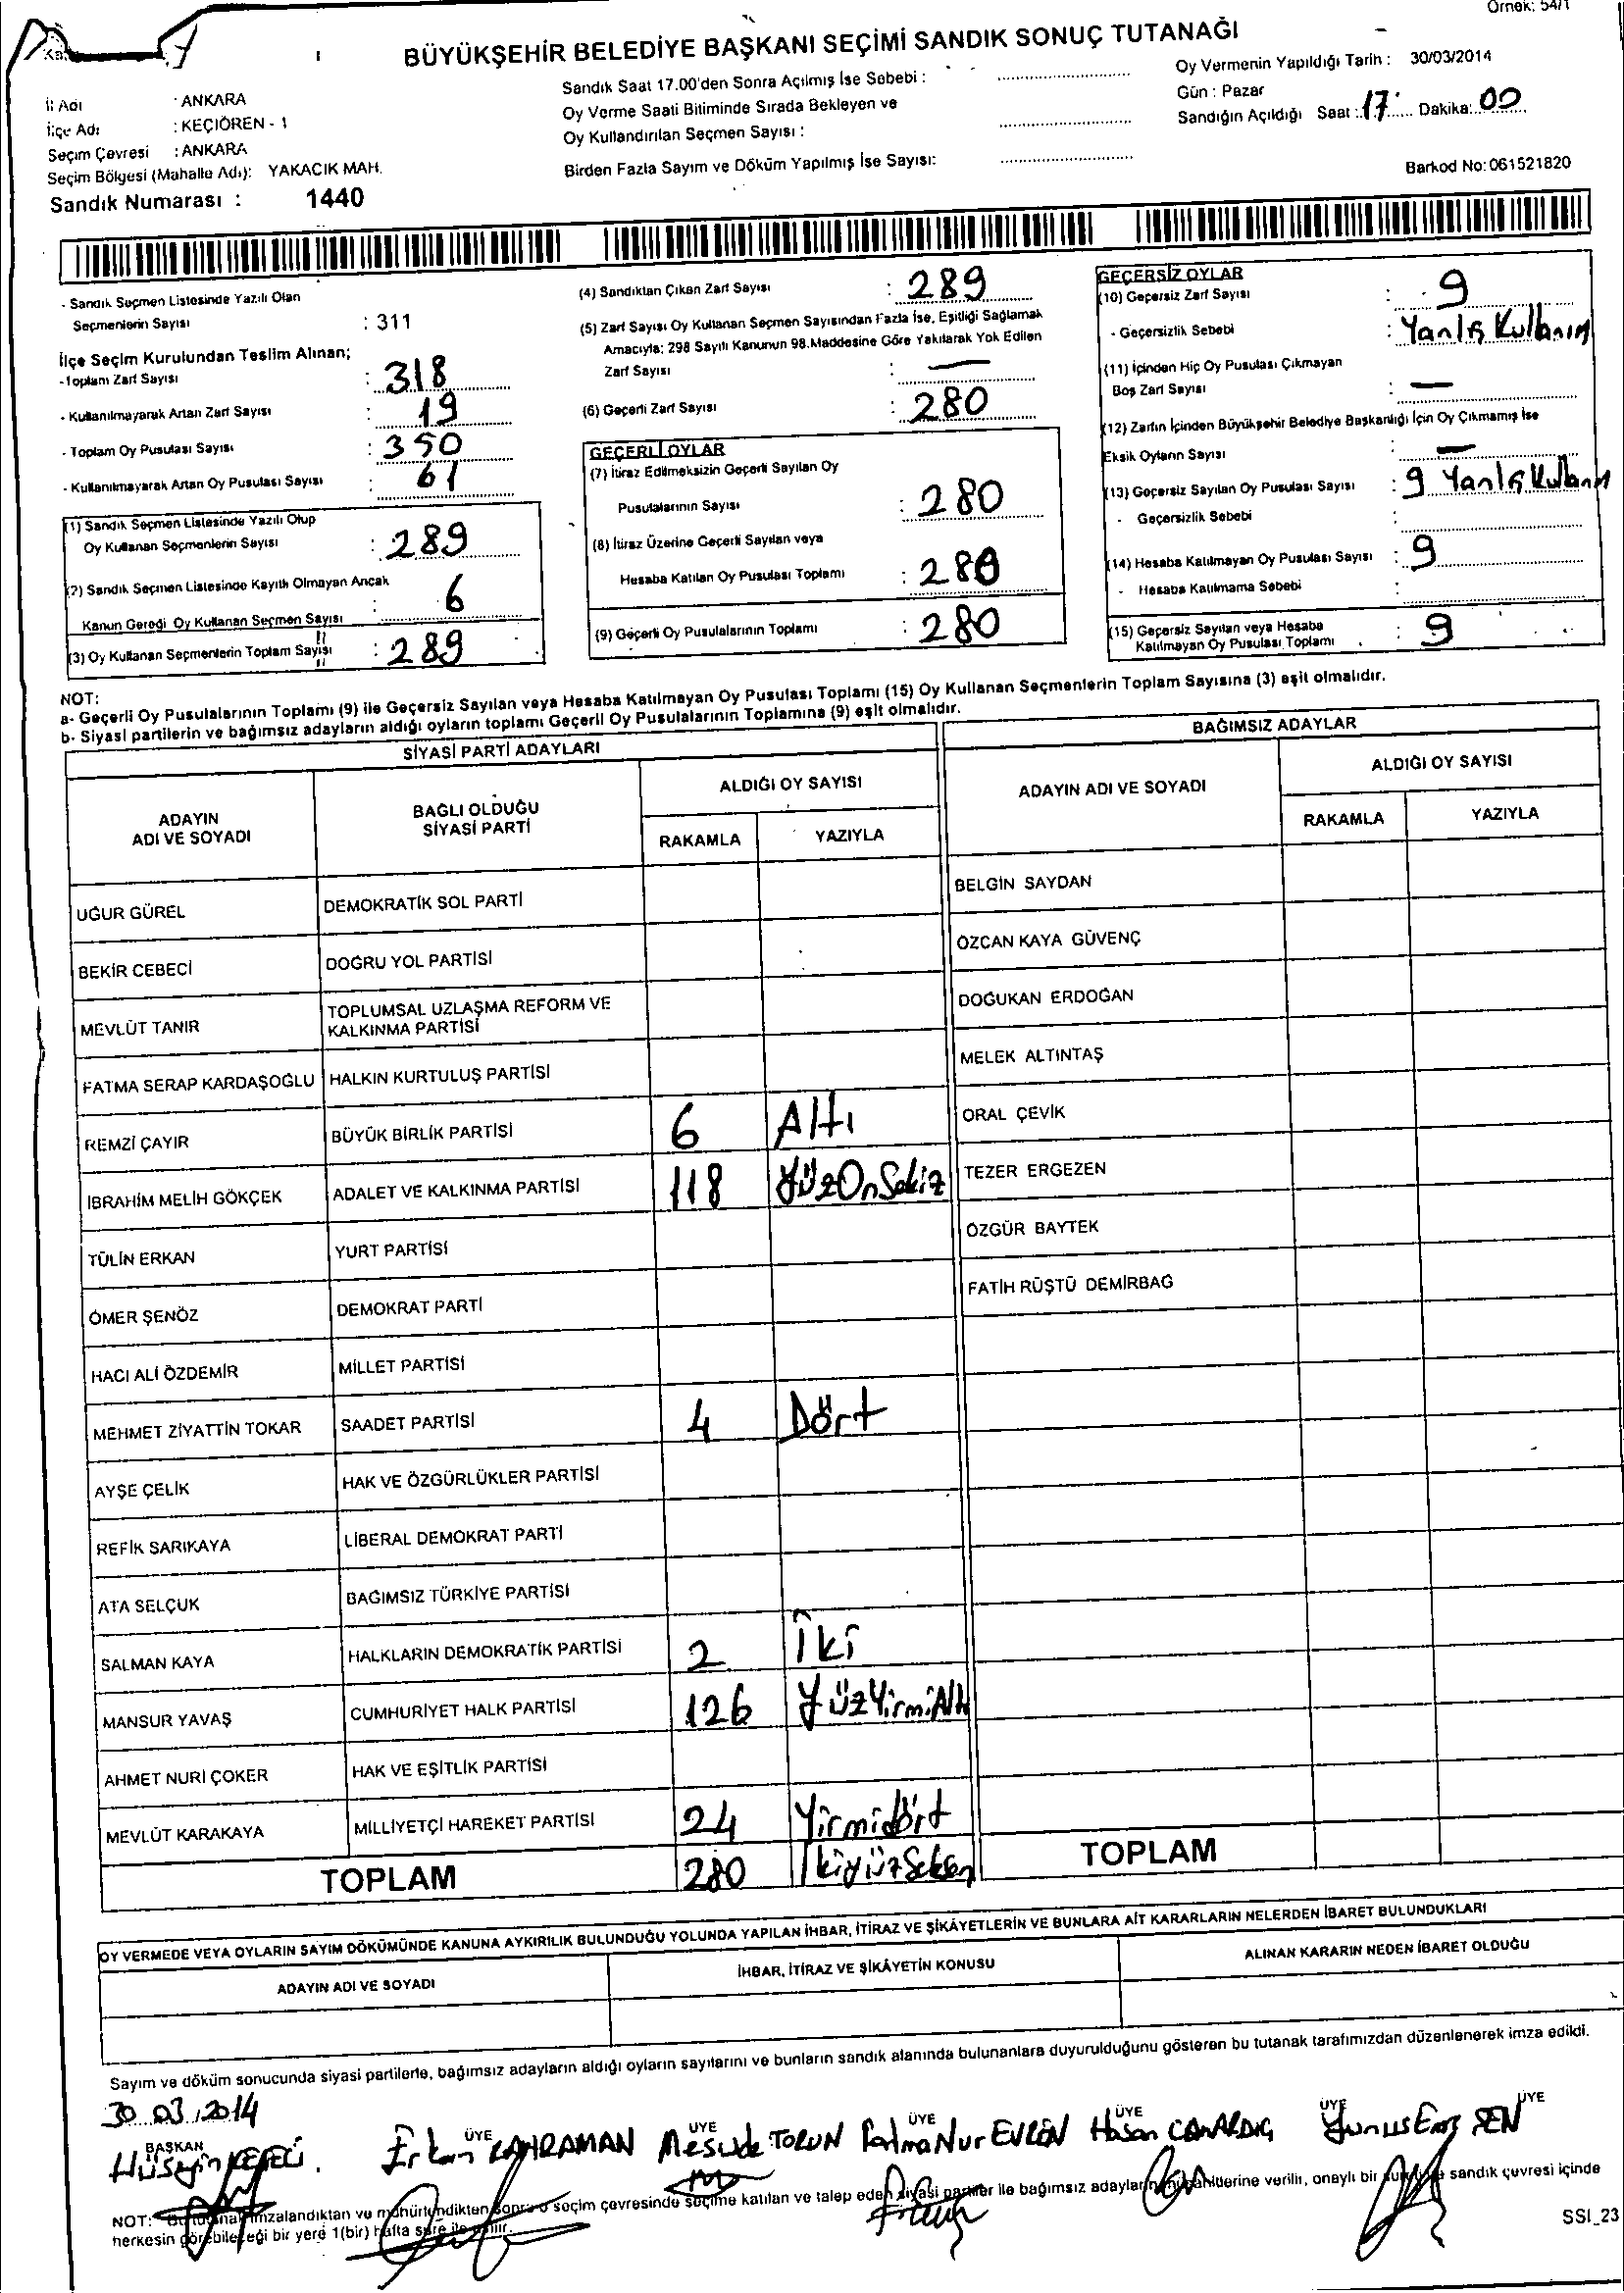 Örnek: 54/1
BÜYÜKŞEHİR BELEDİYE BAŞKANI SEÇİMİ SANDIK SONUÇ TUTANAĞI
İl Adı : ANKARA
İlçe Adı : KEÇİÖREN - 1
Seçim Çevresi : ANKARA
Seçim Bölgesi (Mahalle Adı): YAKACIK MAH.
Sandık Numarası : 1440
Sandık Saat 17.00'den Sonra Açılmış İse Sebebi :
Oy Verme Saati Bitiminde Sırada Bekleyen ve
Oy Kullandırılan Seçmen Sayısı :
Birden Fazla Sayım ve Döküm Yapılmış İse Sayısı:
Oy Vermenin Yapıldığı Tarih : 30/03/2014
Gün : Pazar
Sandığın Açıldığı Saat : 17 Dakika: 00
Barkod No: 061521820
- Sandık Seçmen Listesinde Yazılı Olan
Seçmenlerin Sayısı : 311
İlçe Seçim Kurulundan Teslim Alınan;
- Toplam Zarf Sayısı : 318
- Kullanılmayarak Artan Zarf Sayısı : 19
- Toplam Oy Pusulası Sayısı : 350
- Kullanılmayarak Artan Oy Pusulası Sayısı : 61
(1) Sandık Seçmen Listesinde Yazılı Olup
Oy Kullanan Seçmenlerin Sayısı : 289
(2) Sandık Seçmen Listesinde Kayıtlı Olmayan Ancak
Kanun Gereği Oy Kullanan Seçmen Sayısı : 6
(3) Oy Kullanan Seçmenlerin Toplam Sayısı : 289
(4) Sandıktan Çıkan Zarf Sayısı : 289
(5) Zarf Sayısı Oy Kullanan Seçmen Sayısından Fazla İse, Eşitliği Sağlamak
Amacıyla; 298 Sayılı Kanunun 98.Maddesine Göre Yakılarak Yok Edilen
Zarf Sayısı : —
(6) Geçerli Zarf Sayısı : 280
GEÇERLİ OYLAR
(7) İtiraz Edilmeksizin Geçerli Sayılan Oy
Pusulalarının Sayısı : 280
(8) İtiraz Üzerine Geçerli Sayılan veya
Hesaba Katılan Oy Pusulası Toplamı : 280
(9) Geçerli Oy Pusulalarının Toplamı : 280
GEÇERSİZ OYLAR
(10) Geçersiz Zarf Sayısı : 9
- Geçersizlik Sebebi : Yanlış Kullanım
(11) İçinden Hiç Oy Pusulası Çıkmayan
Boş Zarf Sayısı : —
(12) Zarfın İçinden Büyükşehir Belediye Başkanlığı İçin Oy Çıkmamış İse
Eksik Oyların Sayısı : —
(13) Geçersiz Sayılan Oy Pusulası Sayısı : 9 Yanlış Kullanım
- Geçersizlik Sebebi :
(14) Hesaba Katılmayan Oy Pusulası Sayısı : 9
- Hesaba Katılmama Sebebi :
(15) Geçersiz Sayılan veya Hesaba
Katılmayan Oy Pusulası Toplamı : 9
NOT:
a- Geçerli Oy Pusulalarının Toplamı (9) ile Geçersiz Sayılan veya Hesaba Katılmayan Oy Pusulası Toplamı (15) Oy Kullanan Seçmenlerin Toplam Sayısına (3) eşit olmalıdır.
b- Siyasi partilerin ve bağımsız adayların aldığı oyların toplamı Geçerli Oy Pusulalarının Toplamına (9) eşit olmalıdır.
SİYASİ PARTİ ADAYLARI
ADAYIN ADI VE SOYADI
BAĞLI OLDUĞU SİYASİ PARTİ
ALDIĞI OY SAYISI
RAKAMLA YAZIYLA
UĞUR GÜREL DEMOKRATİK SOL PARTİ
BEKİR CEBECİ DOĞRU YOL PARTİSİ
MEVLÜT TANIR TOPLUMSAL UZLAŞMA REFORM VE KALKINMA PARTİSİ
FATMA SERAP KARDAŞOĞLU HALKIN KURTULUŞ PARTİSİ
REMZİ ÇAYIR BÜYÜK BİRLİK PARTİSİ 6 Altı
İBRAHİM MELİH GÖKÇEK ADALET VE KALKINMA PARTİSİ 118 YüzOnSekiz
TÜLİN ERKAN YURT PARTİSİ
ÖMER ŞENÖZ DEMOKRAT PARTİ
HACI ALİ ÖZDEMİR MİLLET PARTİSİ
MEHMET ZİYATTİN TOKAR SAADET PARTİSİ 4 Dört
AYŞE ÇELİK HAK VE ÖZGÜRLÜKLER PARTİSİ
REFİK SARIKAYA LİBERAL DEMOKRAT PARTİ
ATA SELÇUK BAĞIMSIZ TÜRKİYE PARTİSİ
SALMAN KAYA HALKLARIN DEMOKRATİK PARTİSİ 2 İki
MANSUR YAVAŞ CUMHURİYET HALK PARTİSİ 126 YüzYirmiAltı
AHMET NURİ ÇOKER HAK VE EŞİTLİK PARTİSİ
MEVLÜT KARAKAYA MİLLİYETÇİ HAREKET PARTİSİ 24 Yirmidört
TOPLAM 280 İkiyüzSeksen
BAĞIMSIZ ADAYLAR
ADAYIN ADI VE SOYADI
ALDIĞI OY SAYISI
RAKAMLA YAZIYLA
BELGİN SAYDAN
ÖZCAN KAYA GÜVENÇ
DOĞUKAN ERDOĞAN
MELEK ALTINTAŞ
ORAL ÇEVİK
TEZER ERGEZEN
ÖZGÜR BAYTEK
FATİH RÜŞTÜ DEMİRBAĞ
TOPLAM
OY VERMEDE VEYA OYLARIN SAYIM DÖKÜMÜNDE KANUNA AYKIRILIK BULUNDUĞU YOLUNDA YAPILAN İHBAR, İTİRAZ VE ŞİKÂYETLERİN VE BUNLARA AİT KARARLARIN NELERDEN İBARET BULUNDUKLARI
ADAYIN ADI VE SOYADI
İHBAR, İTİRAZ VE ŞİKÂYETİN KONUSU
ALINAN KARARIN NEDEN İBARET OLDUĞU
Sayım ve döküm sonucunda siyasi partilerle, bağımsız adayların aldığı oyların sayılarını ve bunların sandık alanında bulunanlara duyurulduğunu gösteren bu tutanak tarafımızdan düzenlenerek imza edildi.
30.03.2014
BAŞKAN ÜYE ÜYE ÜYE ÜYE ÜYE ÜYE
Hüseyin Erkan KAHRAMAN Mesude TORUN Fatma Nur EVREN Hasan Yunus Emre ŞEN
NOT: Bu tutanak imzalandıktan ve mühürlendikten sonra o seçim çevresinde seçime katılan ve talep eden siyasi partiler ile bağımsız adayların müşahitlerine verilir, onaylı bir sureti de sandık çevresi içinde
herkesin görebileceği bir yere 1(bir) hafta süre ile asılır.
SSI_23